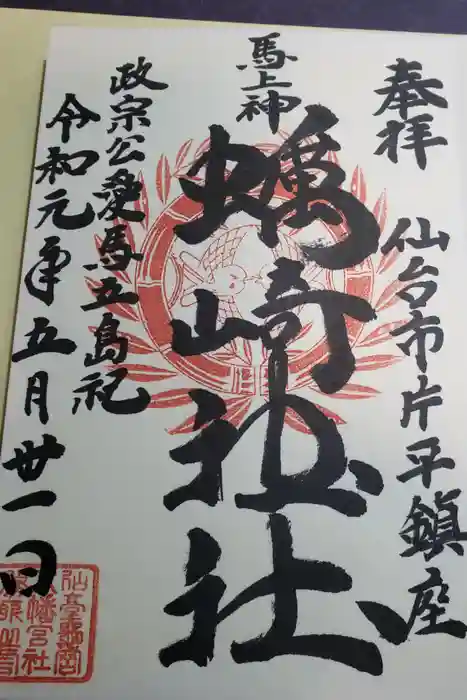 奉拝 仙台市片平鎮座
馬上神
蠣崎神社
政宗公愛馬五島祀
令和元年五月丗一日